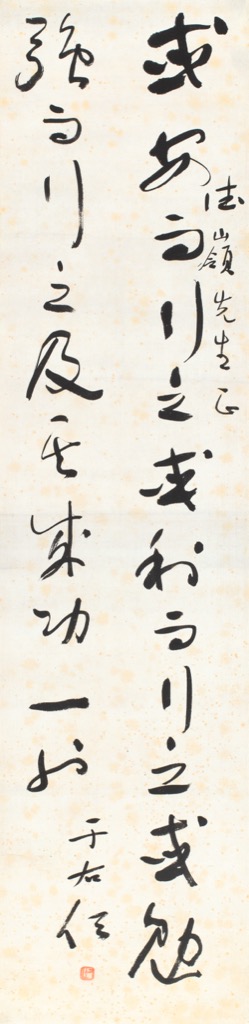 或安而行之或利而行之或勉
強而行之及其成功一也
德嶺先生正
于右任